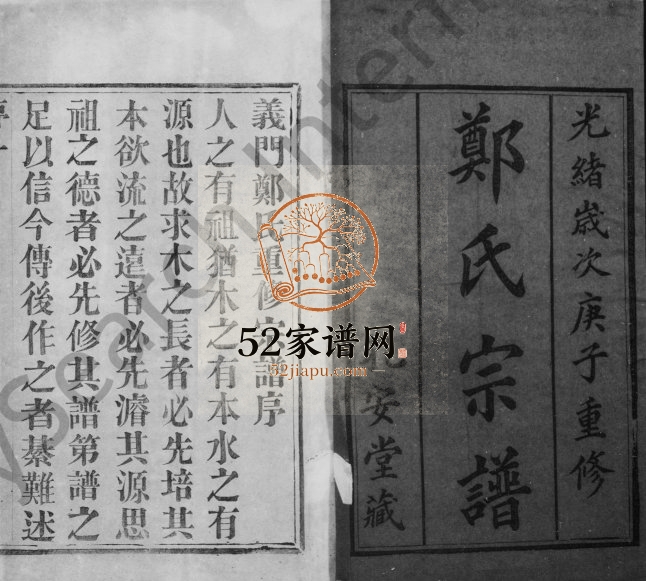 光緒歲次庚子重修
鄭氏宗譜
安堂藏
義門鄭氏重修宗譜序
人之有祖猶木之有本水之有
源也故求木之長者必先培其
本欲流之遠者必先濬其源思
祖之德者必先修其譜第譜之
足以信今傳後作之者綦難述
52家谱网
52jiapu.com